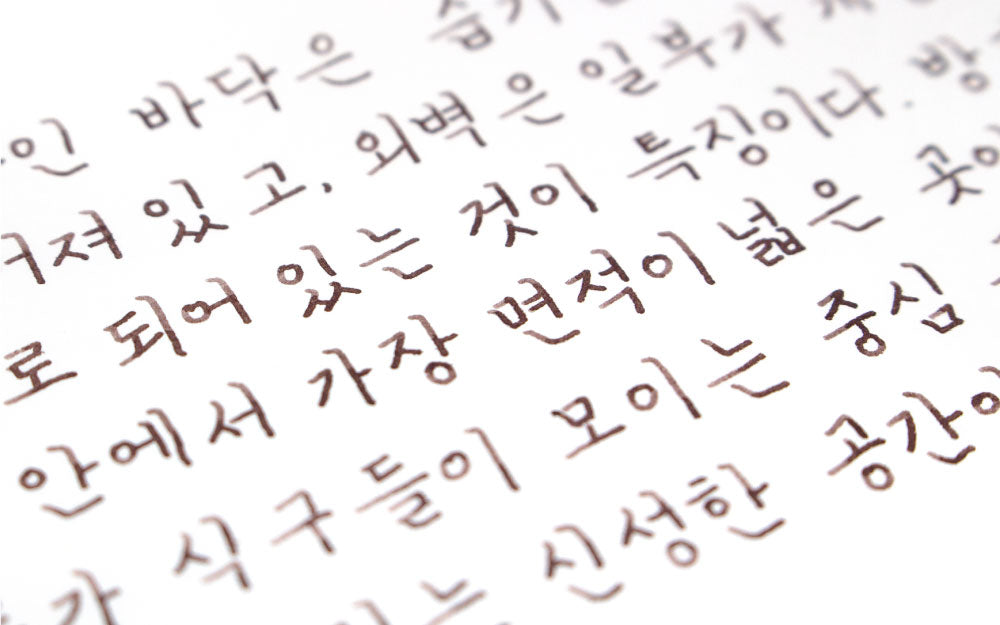 인 바닥은
져 있고, 외벽은 일부가
로 되어 있는 것이 특징이다. 방
안에서 가장 면적이 넓은 곳이
가 식구들이 모이는 중심
는 신성한 공간이